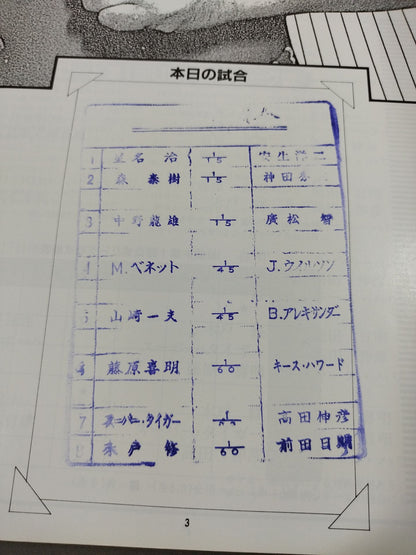 本日の試合
1 星名 治 1/15 安生洋二
2 森 泰樹 1/15 神田
3 中野龍雄 1/15 廣松 智
4 M.ベネット 1/45 J.ウイルソン
5 山崎一夫 1/45 B.アレキサンダー
6 藤原喜明 1/60 キース・ハワード
7 スーパー・タイガー 高田伸彦
8 木戸 修 1/60 前田日明
3